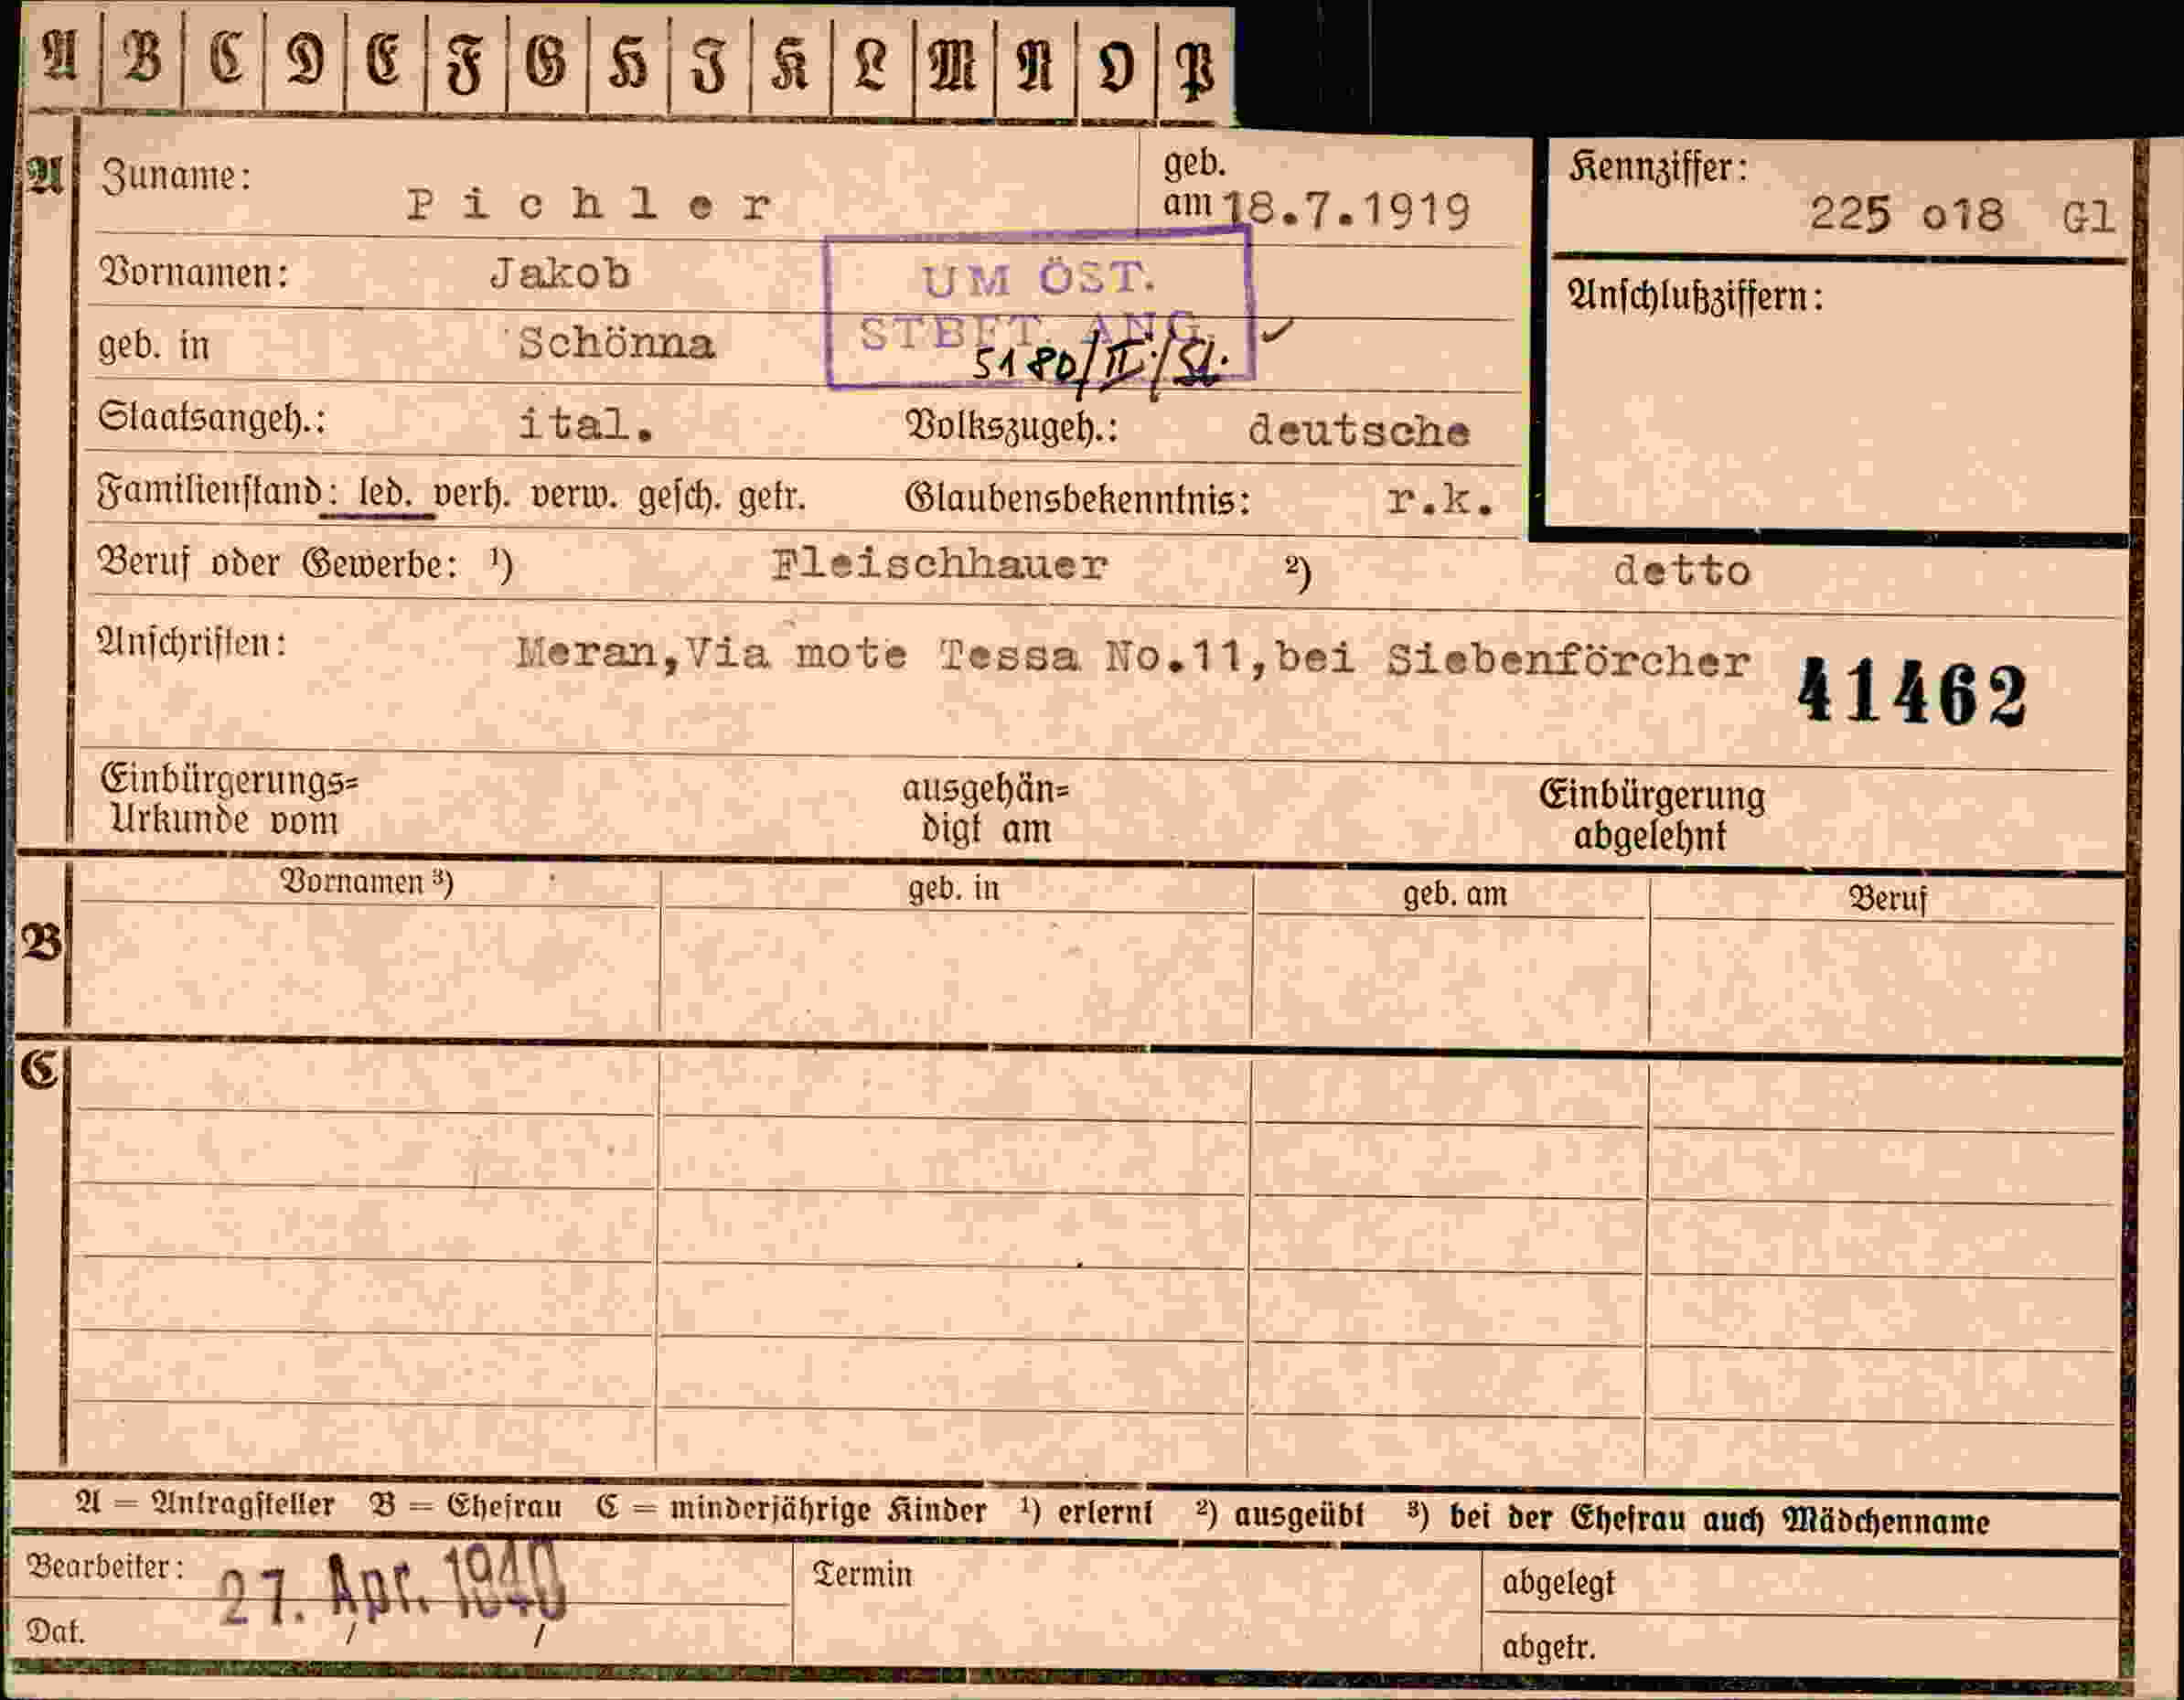 A B C D E F G H I K L M N O P
A Zuname: Pichler geb. am 18.7.1919 Kennziffer: 225 o18 Gl
Vornamen: Jakob UM ÖST. Anschlußziffern:
geb. in Schönna STBFT. ANG.
5180/II./Sl.
Staatsangeh.: ital. Volkszugeh.: deutsche
Familienstand: led. verh. verw. gesch. getr. Glaubensbekenntnis: r.k.
Beruf oder Gewerbe: ¹) Fleischhauer ²) detto
Anschriften: Meran,Via mote Tessa No.11,bei Siebenförcher 41462
Einbürgerungs= ausgehän= Einbürgerung
Urkunde vom digt am abgelehnt
Vornamen ³) geb. in geb. am Beruf
B
C
A = Antragsteller B = Ehefrau C = minderjährige Kinder ¹) erlernt ²) ausgeübt ³) bei der Ehefrau auch Mädchenname
Bearbeiter: 27. Apr. 1940 Termin abgelegt
Dat. abgetr.